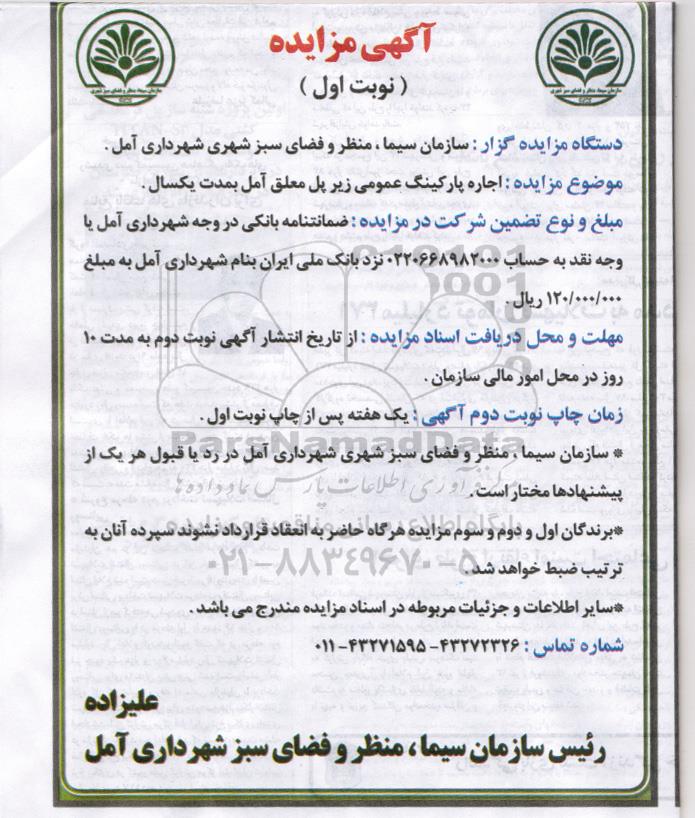 آگهی مزایده
( نوبت اول )
سازمان سیما، منظر و فضای سبز شهری
سازمان سیما، منظر و فضای سبز شهری
دستگاه مزایده گزار : سازمان سیما ، منظر و فضای سبز شهری شهرداری آمل .
موضوع مزایده : اجاره پارکینگ عمومی زیر پل معلق آمل بمدت یکسال .
مبلغ و نوع تضمین شرکت در مزایده : ضمانتنامه بانکی در وجه شهرداری آمل یا
وجه نقد به حساب ۰۲۲۰۶۶۸۹۸۲۰۰۰ نزد بانک ملی ایران بنام شهرداری آمل به مبلغ
۱۲۰/۰۰۰/۰۰۰ ریال .
مهلت و محل دریافت اسناد مزایده : از تاریخ انتشار آگهی نوبت دوم به مدت ۱۰
روز در محل امور مالی سازمان .
زمان چاپ نوبت دوم آگهی : یک هفته پس از چاپ نوبت اول .
ParsNamadData
* سازمان سیما ، منظر و فضای سبز شهری شهرداری آمل در رد یا قبول هر یک از
مرکز فرآوری اطلاعات پارس نماد داده ها
پیشنهادها مختار است .
*برندگان اول و دوم و سوم مزایده هرگاه حاضر به انعقاد قرارداد نشوند سپرده آنان به
ترتیب ضبط خواهد شد .
۰۲۱-۸۸۳۴۹۶۷۰-۵
*سایر اطلاعات و جزئیات مربوطه در اسناد مزایده مندرج می باشد .
شماره تماس : ۴۳۲۷۲۳۲۶- ۴۳۲۷۱۵۹۵-۰۱۱
علیزاده
رئیس سازمان سیما ، منظر و فضای سبز شهرداری آمل